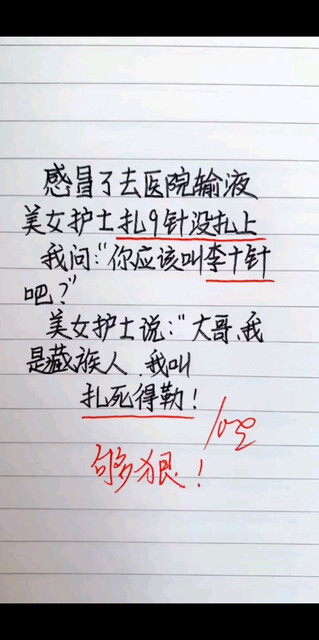 感冒了去医院输液
美女护士扎9针没扎上
我问:“你应该叫李十针
吧?”
美女护士说:“大哥、我
是藏族人.我叫
扎死得勒!
够狠!